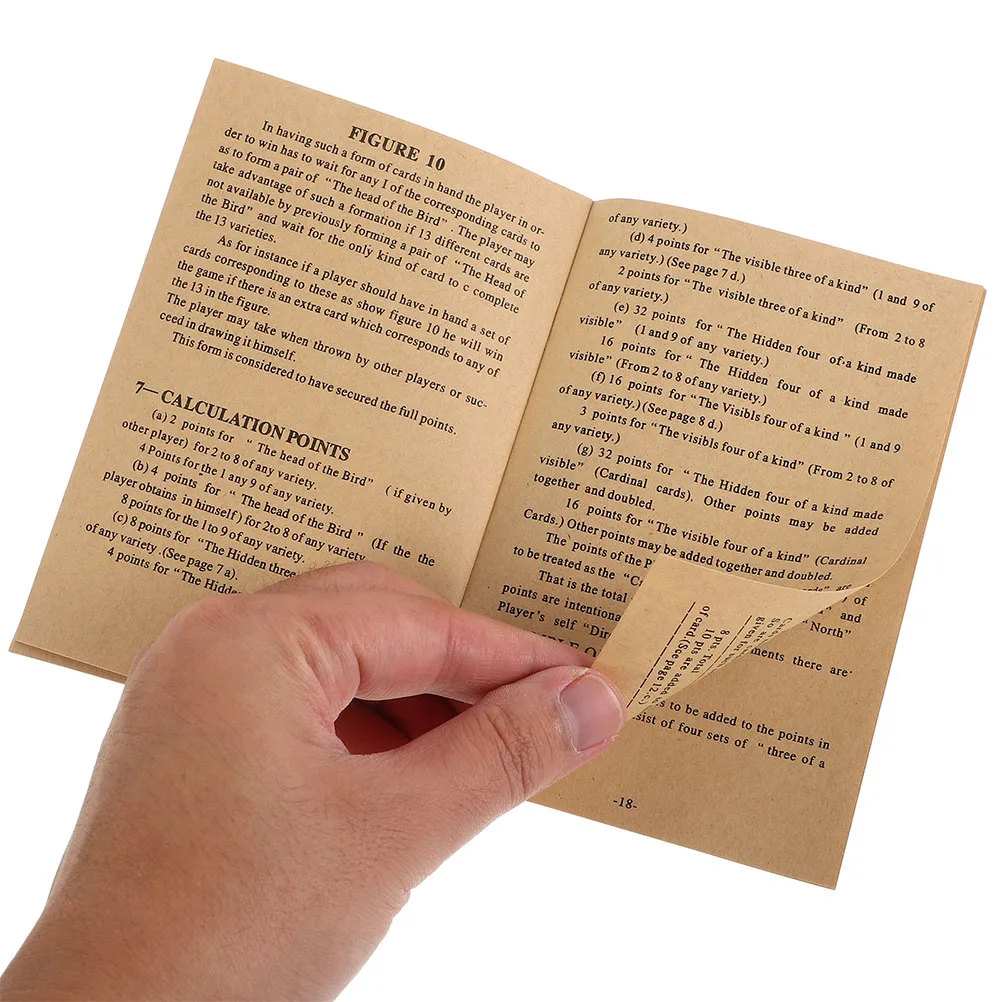 FIGURE 10
In having such a form of cards in hand the player in or-
der to win has to wait for any I of the corresponding cards to
as to form a pair of “The head of the Bird” . The player may
take advantage of such a formation if 13 different cards are
not available by previously forming a pair of “The Head of
the Bird” and wait for the only kind of card to c complete
the 13 varieties.
As for instance if a player should have in hand a set of
cards corresponding to these as show figure 10 he will win
the game if there is an extra card which corresponds to any of
the 13 in the figure.
The player may take when thrown by other players or suc-
ceed in drawing it himself.
This form is considered to have secured the full points.
7—CALCULATION POINTS
(a) 2 points for “ The head of the Bird” ( if given by
other player) for 2 to 8 of any variety.
4 Points for the 1 any 9 of any variety.
(b) 4 points for “ The head of the Bird ” (If the the
player obtains in himself) for 2to 8 of any variety
8 points for the 1 to 9 of any variety.
(c) 8 points for “The Hidden three
of any variety .(See page 7 a).
4 points for “The Hidde
of any variety.)
(d) 4 points for “The visible three of a kind” (1 and 9 of
any variety.) (See page 7 d.)
2 points for “The visible three of a kind” (From 2 to 8
of any variety.)
(e) 32 points for “ The Hidden four of a kind made
visible” (1 and 9 of any variety.)
16 points for “ The Hidden four of a kind made
visible” (From 2 to 8 of any variety.)
(f) 16 points for “The Visibls four of a kind ” (1 and 9
of any variety.) (See page 8 d.)
3 points for “The visibls four of a kind” (From 2 to 8 of
any variety.)
(g) 32 points for “ The Hidden four of a kind made
visible” (Cardinal cards). Other points may be added
together and doubled.
16 points for “The visible four of a kind” (Cardinal
Cards.) Other points may be added together and doubled.
The points of the are
to be treated as the “C 9 of
That is the total
points are intentiona North”
Player’s self “Dir
ments there are
to be added to the points in
sist of four sets of “ three of a
-18-
given for
8 pts. Total
10 pts are added
of card (See page 12.c)